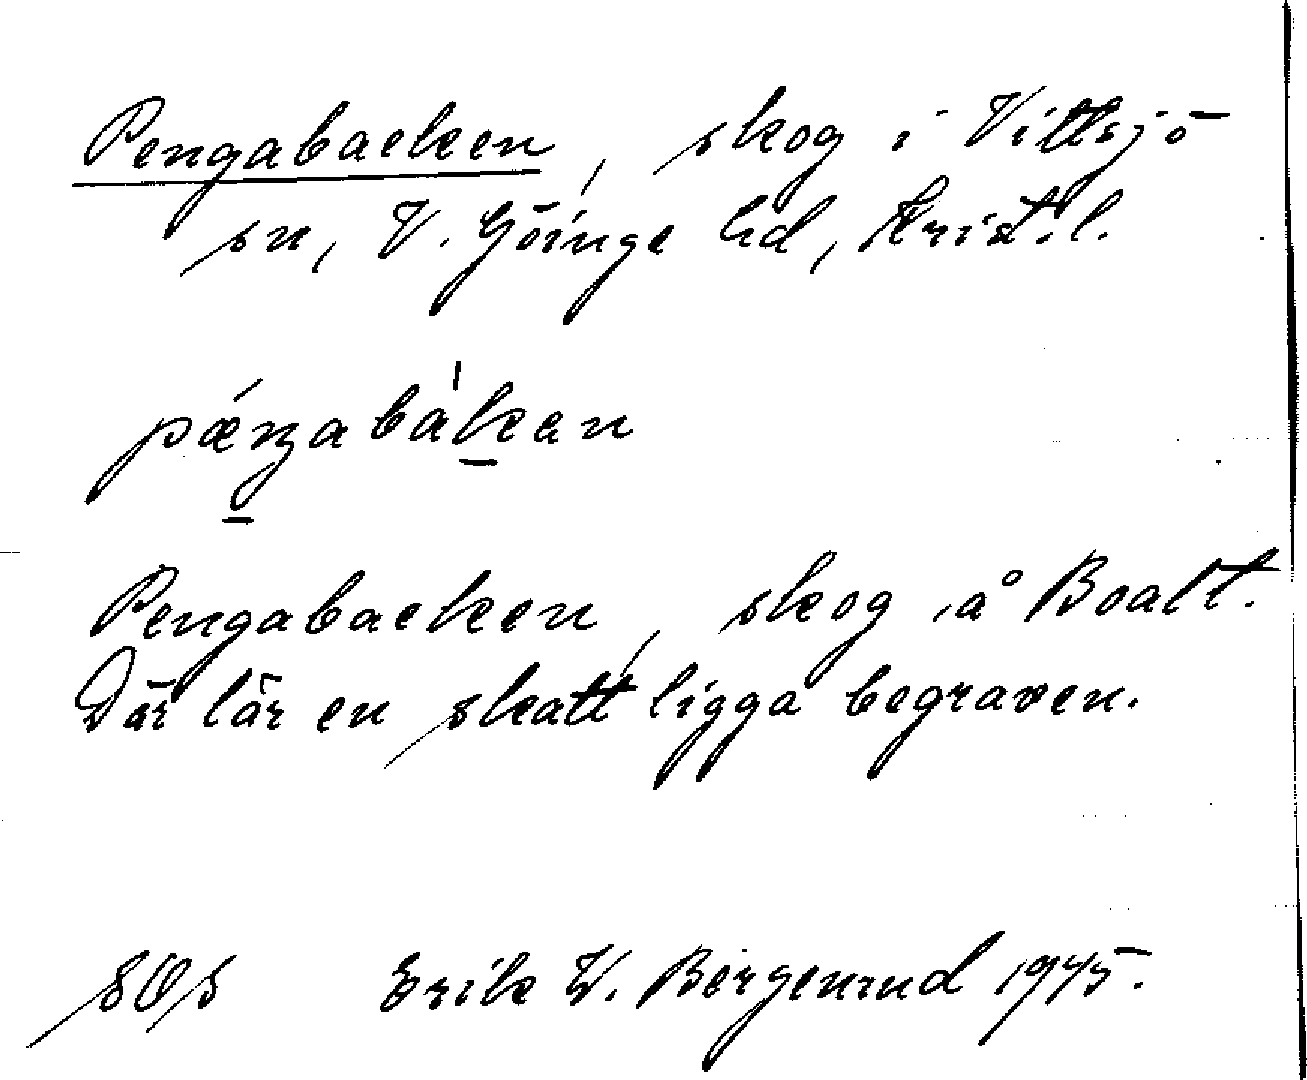 Pengabacken, skog i Vittsjö
sn, V. Göinge hd, Krist. l.
pǽŋabàkan
Pengabacken, skog å Boalt.
Där lär en skatt ligga begraven.
SOS Erik W. Bergenrud 1945.